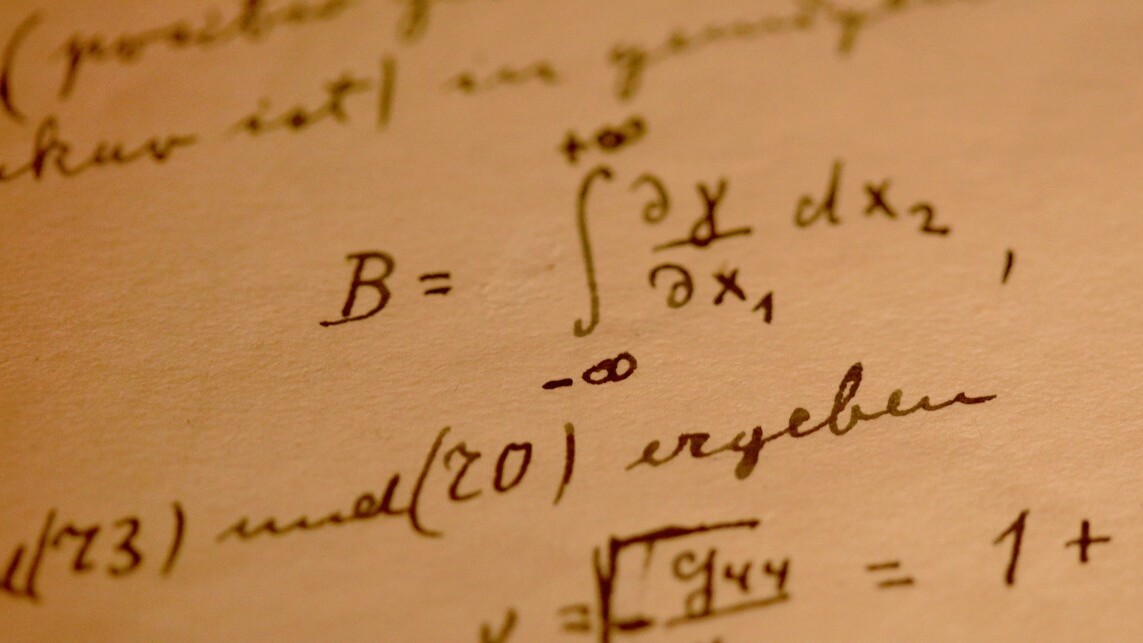 (positiv
ist) in
+∞
B = ∫ ∂γ/∂x₁ dx₂ ,
-∞
(73) und (70) ergeben
γ = √(-g₄₄ = 1 +